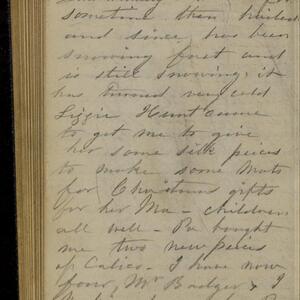 sometime then hailed
and since has been
snowing fast and
is still snowing, it
has turned very cold
Lizzie Hunt came
to get me to give
her some silk pieces
to make some Mats
for Christmas gifts
for her Ma - children
all well - Pa bought
me two new pieces
of Calico - I have now
four, Mr Badger & I